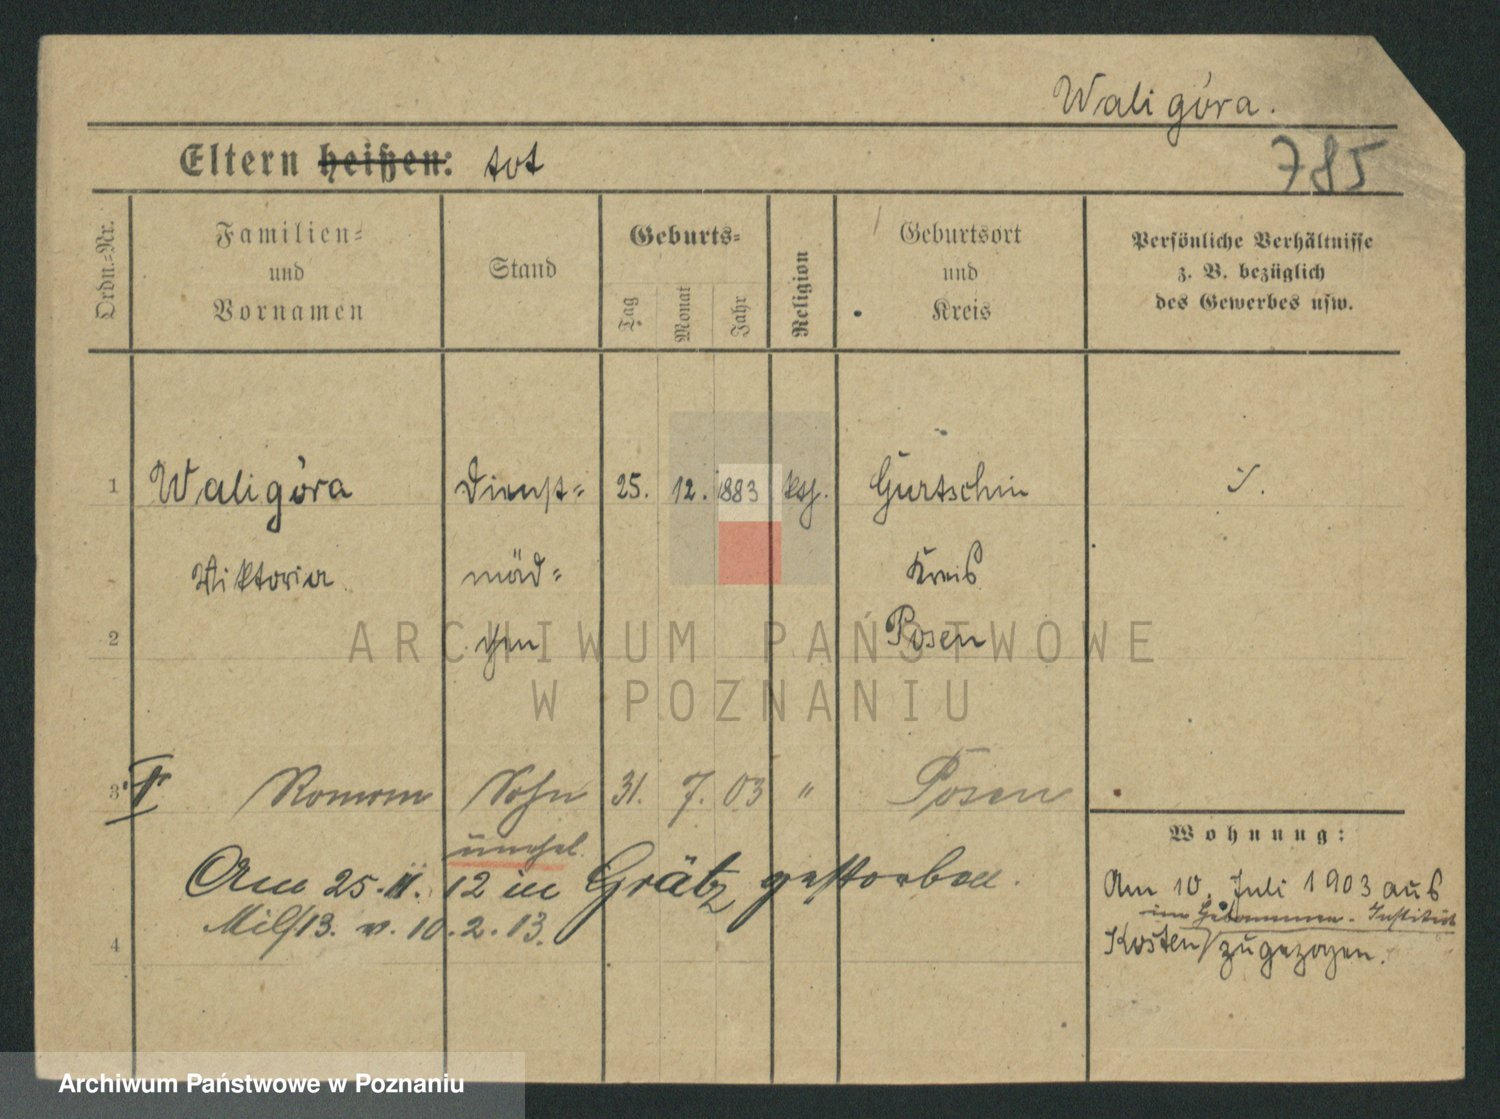 Waligóra.
785
Eltern heißen: tot
Ordn.-Nr.
Familien-
und
Vornamen
Stand
Geburts-
Tag
Monat
Jahr
Religion
Geburtsort
und
Kreis
Persönliche Verhältnisse
z. B. bezüglich
des Gewerbes usw.
1 Waligóra Dienst- 25. 12. 1883 kth. Gurtschin
Viktoria mäd- Kreis
2 chen Posen
ARCHIWUM PAŃSTWOWE
W POZNANIU
3 Roman Sohn 31. 7. 03 " Posen
unehel.
Wohnung:
Am 25. 11. 12 in Grätz gestorben.
13. v. 10. 2. 13.
4
Am 10. Juli 1903 aus
im Hebammen-Institut
Kosten zugezogen.
Archiwum Państwowe w Poznaniu